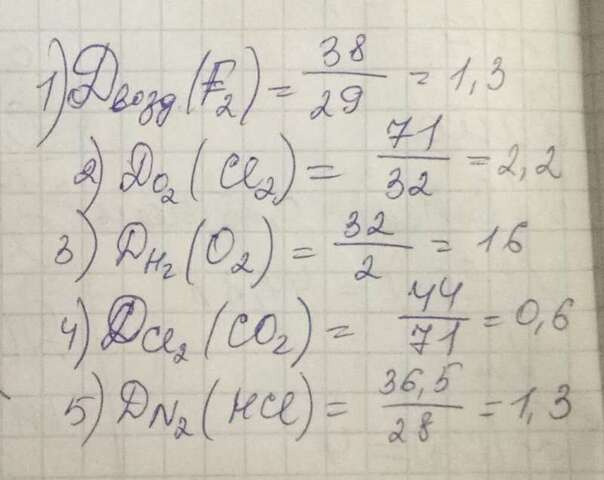 1) Двозд.(F₂) = 38/29 = 1,3
2) DO₂ (Cl₂) = 71/32 = 2,2
3) DH₂ (O₂) = 32/2 = 16
4) DCl₂ (CO₂) = 44/71 = 0,6
5) DN₂ (HCl) = 36,5/28 = 1,3